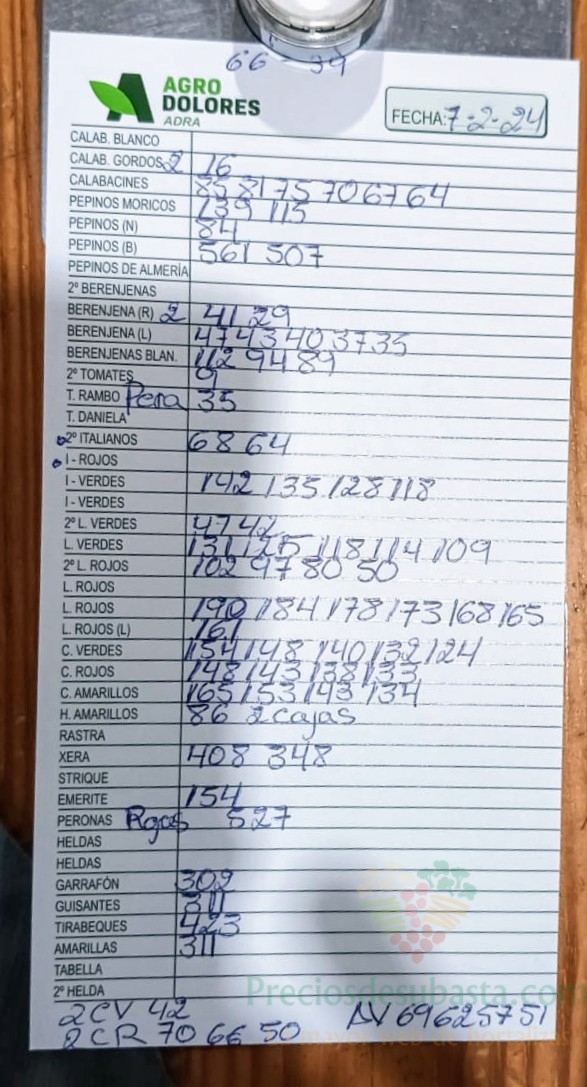 66-39
AGRO
DOLORES
ADRA
FECHA: 7-2-24
CALAB. BLANCO
CALAB. GORDOS 2 16
CALABACINES 85 81 75 70 67 64
PEPINOS MORICOS 139 115
PEPINOS (N) 84
PEPINOS (B) 561 507
PEPINOS DE ALMERÍA
2º BERENJENAS
BERENJENA (R) 2 41 29
BERENJENA (L) 47 43 40 37 35
BERENJENAS BLAN. 112 94 89
2º TOMATES 9
T. RAMBO Pera 35
T. DANIELA
2º ITALIANOS 68 64
I - ROJOS
I - VERDES 142 135 128 118
I - VERDES
2º L. VERDES 47 42
L. VERDES 131 125 118 114 109
2º L. ROJOS 102 97 80 50
L. ROJOS
L. ROJOS 190 184 178 173 168 165
L. ROJOS (L) 161
C. VERDES 154 148 140 132 124
C. ROJOS 148 143 138 133
C. AMARILLOS 165 153 143 134
H. AMARILLOS 86 2 cajas
RASTRA
XERA 408 348
STRIQUE
EMERITE 154
PERONAS Rojas 527
HELDAS
HELDAS
GARRAFÓN 302
GUISANTES 311
TIRABEQUES 423
AMARILLAS 311
TABELLA
2º HELDA
Preciosdesubasta.com
2CV 42 AV 69 62 57 51
2CR 70 66 50